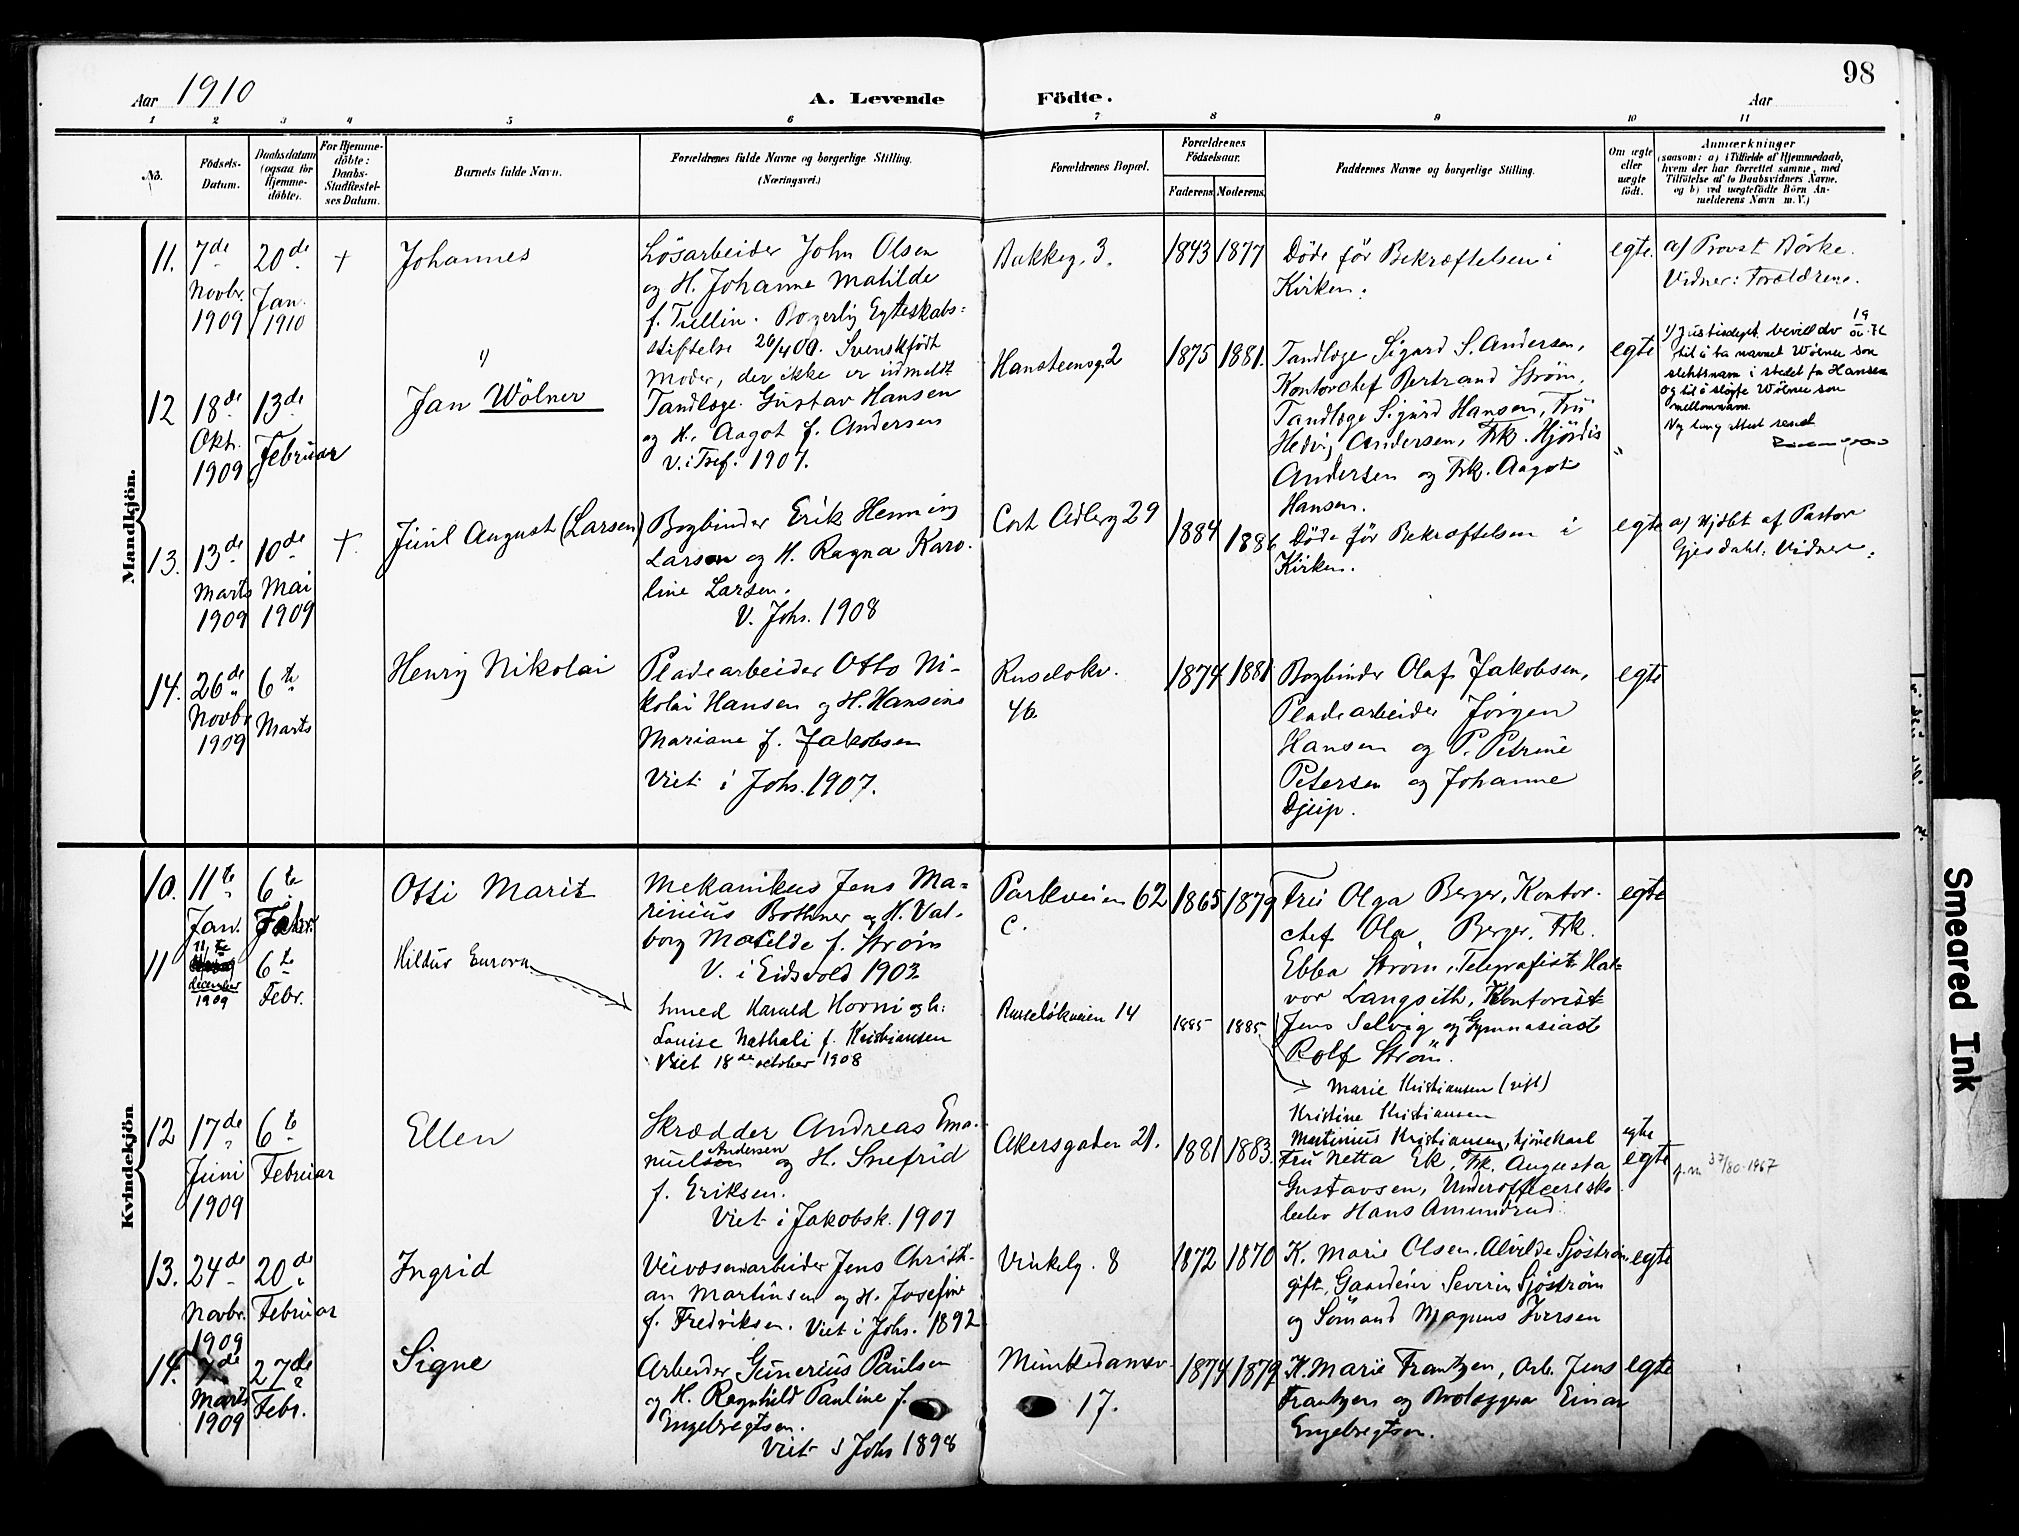 98
Aar 1910
A. Levende Födte.
Aar
1 2 3 4 5 6 7 8 9 10 11
No.
Födsels-Datum.
Daabsdatum (ogsaa for Hjemme-döbte).
For Hjemme-döbte: Daabs-Stadfæstel-ses Datum.
Barnets fulde Navn.
Forældrenes fulde Navne og borgerlige Stilling.
(Næringsvei.)
Forældrenes Bopæl.
Forældrenes Födselsaar.
Faderens. Moderens.
Faddernes Navne og borgerlige Stilling.
Om ægte eller uægte födt.
Anmærkninger
(saasom: a) i Tilfælde af Hjemmedaab, hvem der har forrettet samme, med Tilföielse af to Daabsvidners Navne, og b) ved uægtefödte Börn An-melderens Navn m.V.)
Mandkjön.
11. 7de Novbr. 1909
20de Jan. 1910
+
Johannes
Lösarbeider John Olsen
og H. Johanne Matilde
f. Tullin. Borgerlig Egteskabs=
stiftelse 20/4 00. Svenskfödt
Moder, der ikke er udmeldt
Bakkeg. 3.
1843 1877
Döde för Bekræftelsen i
Kirken.
egte.
a/ Provst Börke.
Vidner: Forældrene.
12 18de Okt. 1909
13de Februar
1)
Jan Wölner
Tandlæge Gustav Hansen
og H. Aagot f. Andersen
V. i Tref. 1907.
Hansteensg. 2
1875 1881.
Tandlæge Sigurd S. Andersen,
Kontorchef Bertrand Ström,
Tandlæge Sigurd Hansen, Fru
Hedvig Andersen, Frk. Hjördis
Andersen og Frk. Aagot
Hansen.
egte
1) Justisdept. bevill. dv
til å ta navnet Wölner som
slektsnavn i stedet for Hansen
og til å sløyfe Wölner som
mellomnavn.
Ny lang attest sendt
13. 13de Marts 1909
10de Mai 1909
+.
Juul August (Larsen)
Bogbinder Erik Henning
Larsen og H. Ragna Karo-
line Larsen.
V. Johs. 1908
Cort Adlerg 29
1884 1886
Döde för Bekræftelsen i
Kirken.
egte
a/ Hjdbt af Pastor
Gjesdahl. Vidner:
14. 26de Novbr 1909
6te Marts
Henry Nikolai
Pladearbeider Otto Ni-
kolai Hansen og H. Hansine
Mariane f. Jakobsen
Viet i Johs. 1907.
Ruselökv.
46
1874 1881
Bogbinder Olaf Jakobsen,
Pladearbeider Jörgen
Hansen og P. Petrine
Petersen og Johanne
Djup.
egte
Kvindekjön
10. 11te Jan.
6te Febr.
Otti Marit
Mekanikus Jens Ma-
rinius Bothner og H. Val-
borg Matilde f. Ström
V. i Eidsvold 1903
Parkveien 62
C.
1865 1879
Fru Olga Berger, Kontor-
chef Ola Berger, Frk.
Ebba Ström, Telegrafist Hal-
vor Langseth, Kontorist
Jens Selvig og Gymnasiast
Rolf Ström.
egte
11 11te december 1909
6te Febr.
Hildur Eurora
Smed Harald Hovni og h:
Louise Nathali f. Kristiansen
Viet 18de october 1908
Ruselökveien 14
1885 1885
Marie Kristiansen (gift)
Kristine Kristiansen
Martinius Kristiansen,
egte
12 17de Juni 1909
6te Februar
Ellen
Skrædder Andreas Ema-
nuelsen Andersen og H. Snefrid
f. Eriksen.
Viet i Jakobsk. 1907
Akersgaden 21.
1881 1883.
Fru Netta Ek, Frk. Augusta
Gustavsen, Underofficersko-
leelev Hans Amundrud
egte
f.m 37/80-1967
13. 24de Novbr. 1909
20de Februar
Ingrid
Veivæsenarbeider Jens Christi-
an Martinsen og H. Josefine
f. Fredriksen. Viet i Johs. 1892
Vinkelg. 8
1872 1870
K. Marie Olsen, Alvilde Sjöström
gift, Severin Sjöström
og Sömand Magnus Iversen
egte
14. 7de Marts 1909
27de Febr.
Signe
Arbeider Gunerius Paulsen
og H. Ragnhild Pauline f.
Engebregtsen.
Viet i Johs 1898
Munkedamsv.
17.
1874 1879
K. Marie Frantzen, Arb. Jens
Frantzen og Brolægger Einar
Engebregtsen.
egte
Smeared Ink